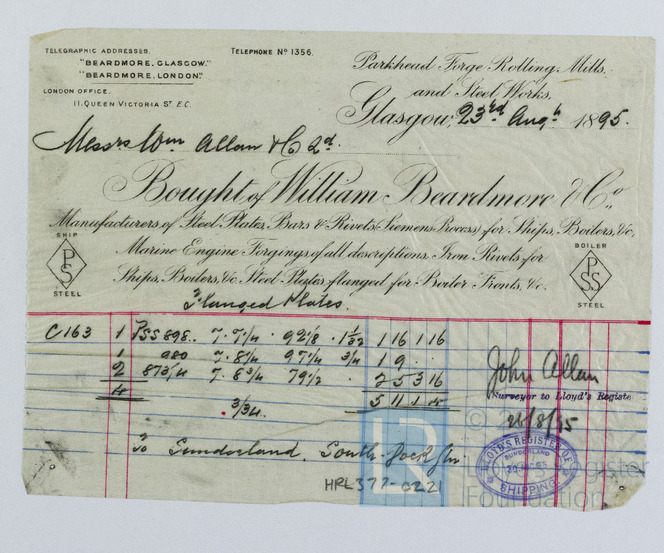 TELEGRAPHIC ADDRESSES.
"BEARDMORE, GLASGOW."
"BEARDMORE, LONDON."
TELEPHONE No 1356.
LONDON OFFICE,
11, QUEEN VICTORIA ST E.C.
Parkhead Forge Rolling Mills,
and Steel Works,
Glasgow, 23rd Augt 1895.
Messrs Wm Allan & Co Ld.
Bought of William Beardmore & Co.,
Manufacturers of Steel Plates, Bars & Rivets (Siemens Process) for Ships, Boilers, &c,
Marine Engine Forgings of all descriptions. Iron Rivets for
Ships, Boilers, &c. Steel Plates flanged for Boiler Fronts, &c.
SHIP
PS
STEEL
BOILER
PSS
STEEL
Flanged Plates.
C163 1 PSS 898. 7. 7 1/4 . 92 1/8 . 1 1/32 1 16 1 16
1 980 7. 8 1/4 97 1/4 3/4 1 9 . .
2 873/4 7. 8 3/4 79 1/2 . 2 5 3 16
4 5 11 1 4
. 3/34.
To Sunderland, South Dock Stn
John Allan
Surveyor to Lloyd's Registe
26/8/95
LLOYD'S REGISTER OF
SUNDERLAND
SHIPPING
HRL377-0221
LR
©
Lloyd's Register
Foundation